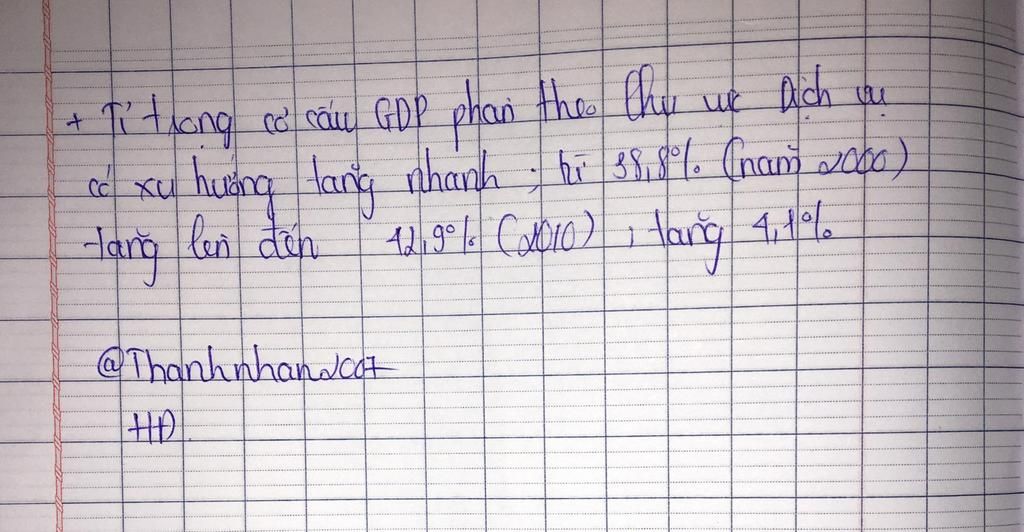 + Tỉ trọng cơ cấu GDP phân theo khu vực Dịch vụ
có xu hướng tăng nhanh ; từ 38,8% (năm 2000)
tăng lên đến 42,9% (2010) ; tăng 4,1%
@Thanhnhan2007
HĐ